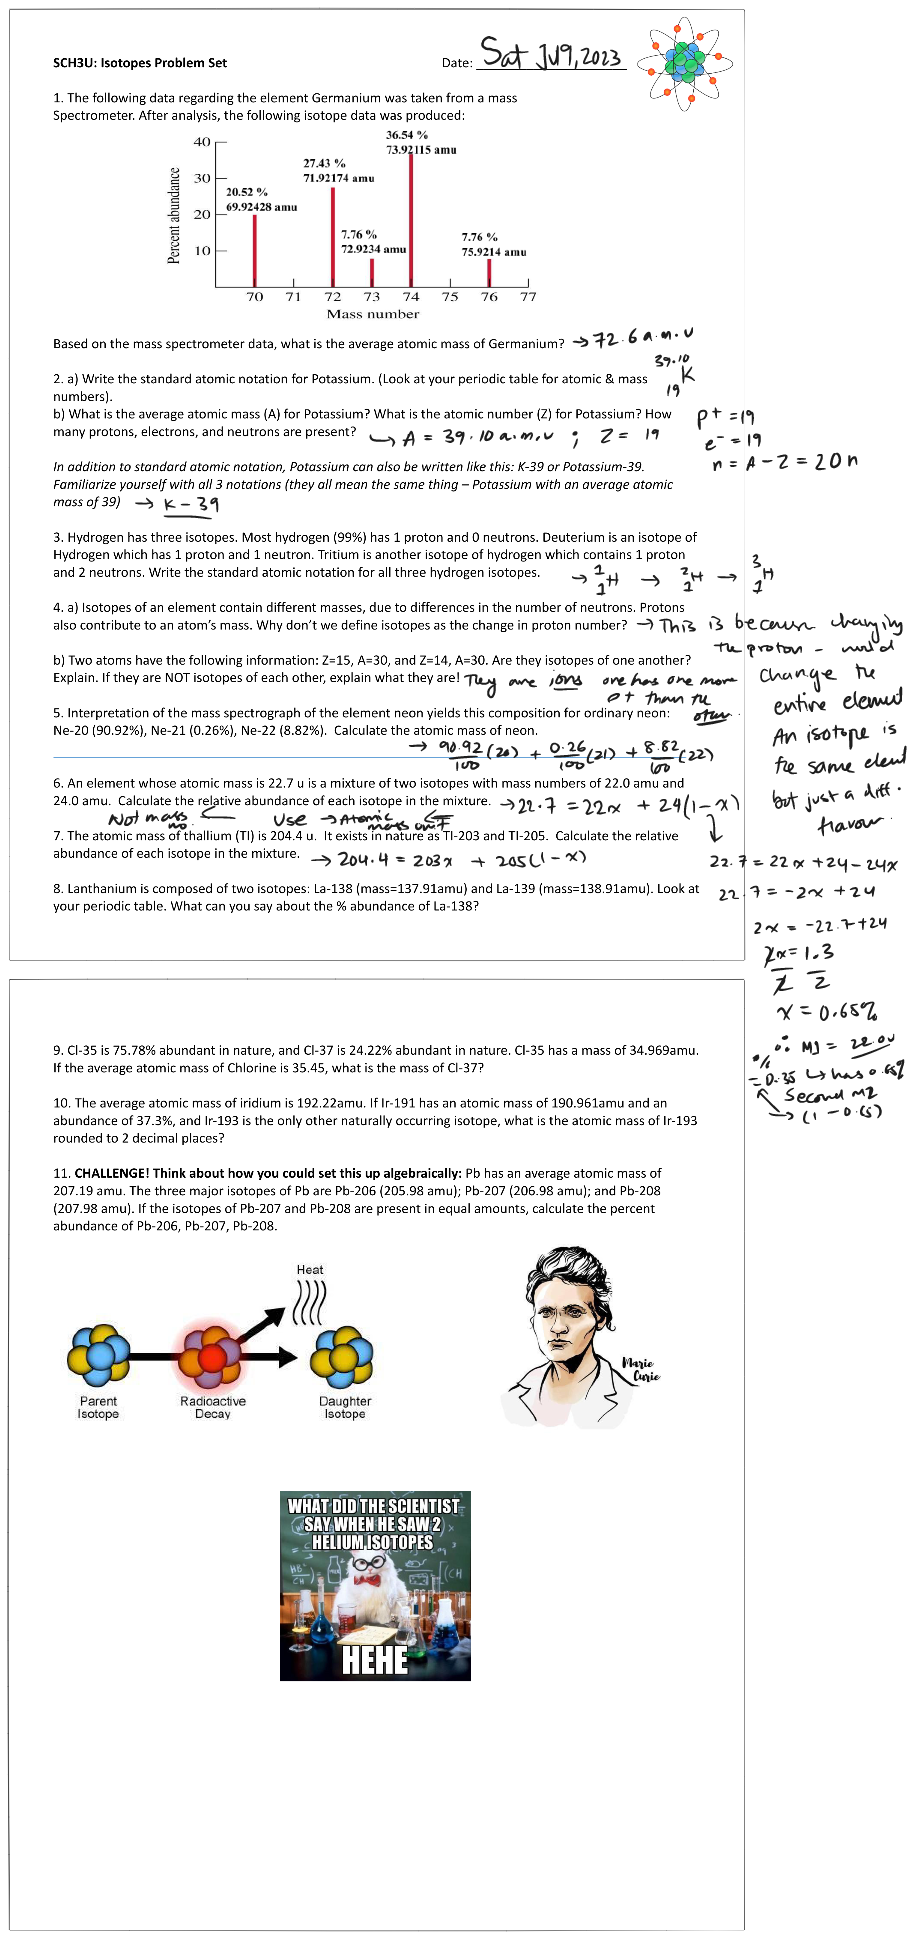 SCH3U: Isotopes Problem Set
Date: Sat Jul 9, 2023
1. The following data regarding the element Germanium was taken from a mass
Spectrometer. After analysis, the following isotope data was produced:
Percent abundance
40
30
20
10
20.52 %
69.92428 amu
27.43 %
71.92174 amu
7.76 %
72.9234 amu
36.54 %
73.92115 amu
7.76 %
75.9214 amu
70 71 72 73 74 75 76 77
Mass number
Based on the mass spectrometer data, what is the average atomic mass of Germanium? → 72.6 a.m.u
2. a) Write the standard atomic notation for Potassium. (Look at your periodic table for atomic & mass
numbers).
39.10
K
19
b) What is the average atomic mass (A) for Potassium? What is the atomic number (Z) for Potassium? How
many protons, electrons, and neutrons are present? ↳ A = 39.10 a.m.u ; Z = 19
p+ = 19
e- = 19
n = A - Z = 20 n
In addition to standard atomic notation, Potassium can also be written like this: K-39 or Potassium-39.
Familiarize yourself with all 3 notations (they all mean the same thing – Potassium with an average atomic
mass of 39) → K - 39
3. Hydrogen has three isotopes. Most hydrogen (99%) has 1 proton and 0 neutrons. Deuterium is an isotope of
Hydrogen which has 1 proton and 1 neutron. Tritium is another isotope of hydrogen which contains 1 proton
and 2 neutrons. Write the standard atomic notation for all three hydrogen isotopes.
→ 1 1 H → 2 1 H → 3 1 H
4. a) Isotopes of an element contain different masses, due to differences in the number of neutrons. Protons
also contribute to an atom's mass. Why don't we define isotopes as the change in proton number? → This is because changing
the proton - would
change the
entire element
An isotope is
the same element
but just a diff.
flavour.
b) Two atoms have the following information: Z=15, A=30, and Z=14, A=30. Are they isotopes of one another?
Explain. If they are NOT isotopes of each other, explain what they are! They are ions one has one more
p+ than the
other.
5. Interpretation of the mass spectrograph of the element neon yields this composition for ordinary neon:
Ne-20 (90.92%), Ne-21 (0.26%), Ne-22 (8.82%). Calculate the atomic mass of neon.
→ 90.92/100 (20) + 0.26/100 (21) + 8.82/100 (22)
6. An element whose atomic mass is 22.7 u is a mixture of two isotopes with mass numbers of 22.0 amu and
24.0 amu. Calculate the relative abundance of each isotope in the mixture. → 22.7 = 22x + 24(1-x)
Not mass no. ← Use → Atomic mass unit
7. The atomic mass of thallium (Tl) is 204.4 u. It exists in nature as Tl-203 and Tl-205. Calculate the relative
abundance of each isotope in the mixture. → 204.4 = 203x + 205(1-x)
22.7 = 22x + 24 - 24x
22.7 = -2x + 24
2x = -22.7 + 24
2x = 1.3
2 2
x = 0.65%
∴ M1 = 22.0u
↳ has 0.65%
Second M2
% = 0.35
→ (1 - 0.65)
8. Lanthanium is composed of two isotopes: La-138 (mass=137.91amu) and La-139 (mass=138.91amu). Look at
your periodic table. What can you say about the % abundance of La-138?
9. Cl-35 is 75.78% abundant in nature, and Cl-37 is 24.22% abundant in nature. Cl-35 has a mass of 34.969amu.
If the average atomic mass of Chlorine is 35.45, what is the mass of Cl-37?
10. The average atomic mass of iridium is 192.22amu. If Ir-191 has an atomic mass of 190.961amu and an
abundance of 37.3%, and Ir-193 is the only other naturally occurring isotope, what is the atomic mass of Ir-193
rounded to 2 decimal places?
11. CHALLENGE! Think about how you could set this up algebraically: Pb has an average atomic mass of
207.19 amu. The three major isotopes of Pb are Pb-206 (205.98 amu); Pb-207 (206.98 amu); and Pb-208
(207.98 amu). If the isotopes of Pb-207 and Pb-208 are present in equal amounts, calculate the percent
abundance of Pb-206, Pb-207, Pb-208.
Heat
Parent
Isotope
Radioactive
Decay
Daughter
Isotope
Marie
Curie
WHAT DID THE SCIENTIST
SAY WHEN HE SAW 2
HELIUM ISOTOPES
HEHE